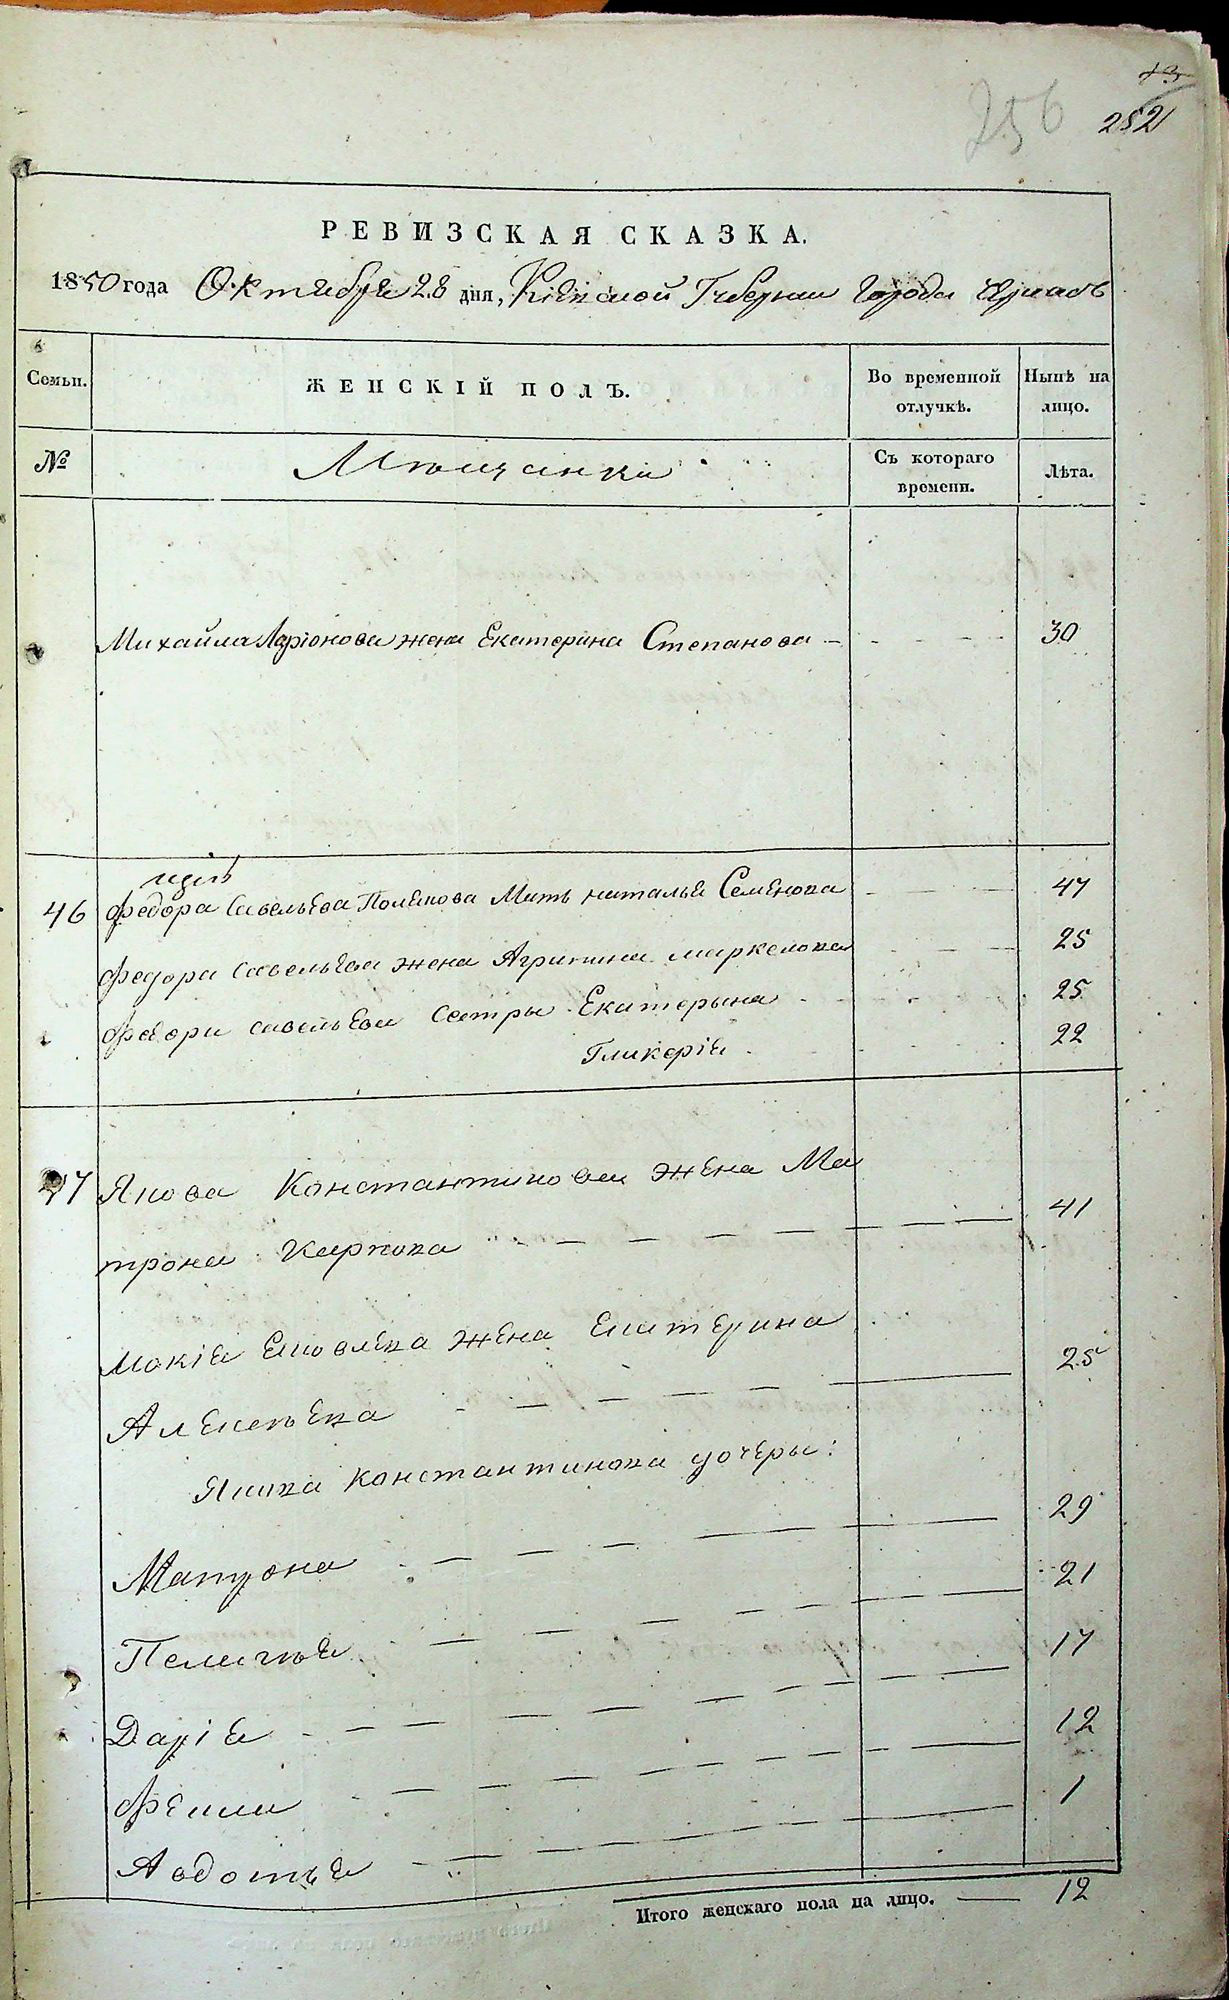 256
252
РЕВИЗСКАЯ СКАЗКА.
1850 года Октября 28 дня, Кіевской Губерніи Города
Семьи.
ЖЕНСКІЙ ПОЛЪ.
Во временной отлучкѣ.
Нынѣ на лицо.
№
Мѣщанки
Съ котораго времени.
Лѣта.
Михайла Ларіонова жена Екатерина Степанова 30
46 Федора Савельева Полякова Мать наталья Семенова 47
Федора савельева жена Агрипина маркелова 25
Федора савельева Сестры Екатерына 25
Гликерія 22
47 Якова Константинова жена Ма
трона Карпова 41
Мокія Яковлева жена Екатерина
Алексѣева 25
Якова Константинова дочеры:
Матрона 29
Пелагѣя 21
Дарія 17
Фекла 12
Авдотья 1
Итого женскаго пола на лицо. 12